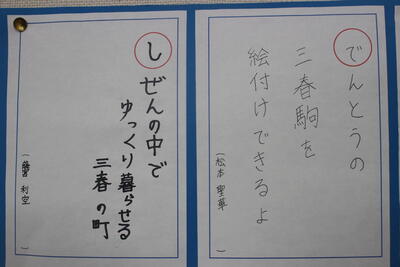 でんとうの
三春駒を
絵付けできるよ
(松本 聖華)
しぜんの中で
ゆっくり暮らせる
三春の町
利空